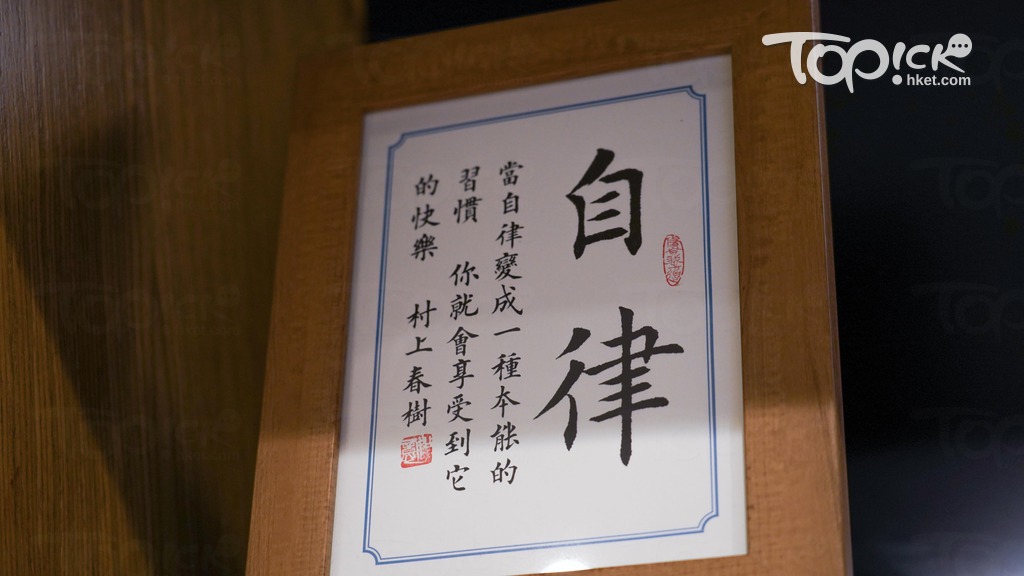 自律
當自律變成一種本能的
習慣 你就會享受到它
的快樂 村上春樹
TOPICK
hket.com